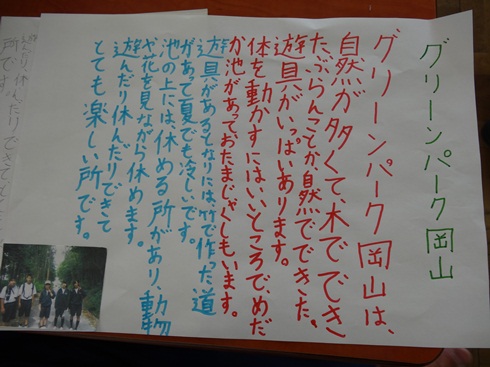 グリーンパーク岡山
グリーンパーク岡山は、
自然が多くて、木でできた
たぶらんことか、自然でできた、
遊具がいっぱいあります。
体を動かすにはいいところで、めだ
か池があっておたまじゃくしもいます。
遊具があるとなりには、竹で作った道
があって夏でも冷しいです。
池の上には、休める所があり、動物
や花を見ながら休めます。
遊んだり休んだりできて
とても楽しい所です。
遊んだり、休んだりできてとても
所です。